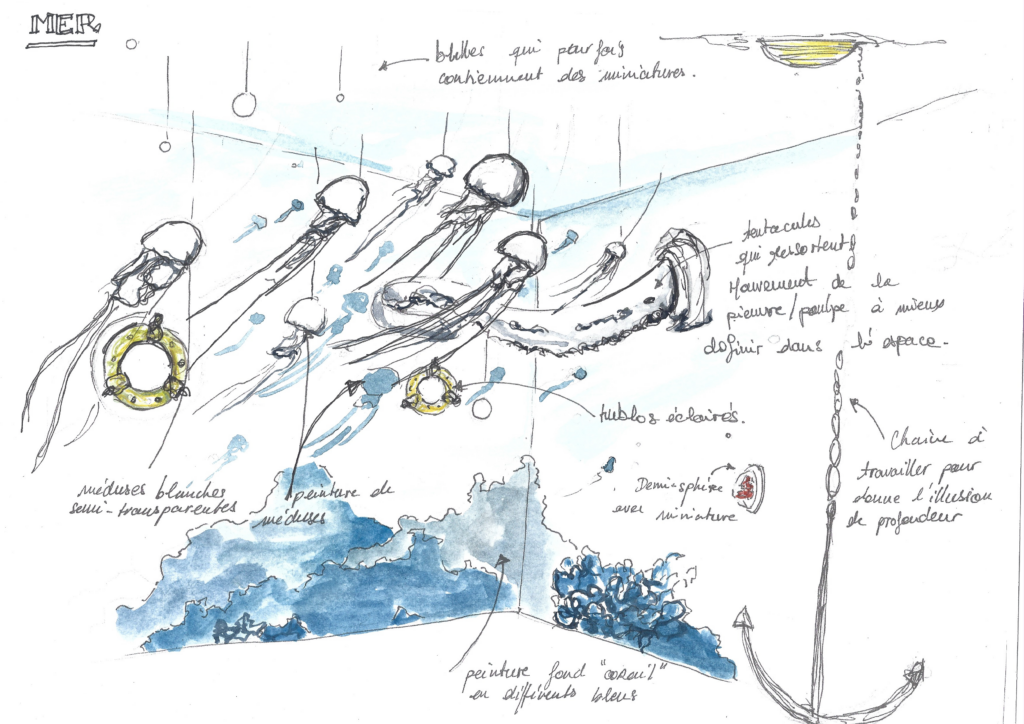 MER
bulles qui parfois
contiennent des miniatures.
tentacules
qui ressortent
Mouvement de la
pieuvre/poulpe à mieux
définir dans l'espace.
hublos éclairés.
Chaîne à
travailler pour
donne l'illusion
de profondeur
méduses blanches
semi-transparentes
peinture de
méduses
Demi-sphère
avec miniature
peinture fond "corail"
en différents bleus